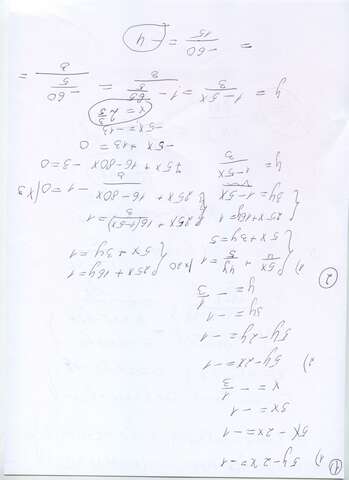 ① 1) 5y-2x=-1
5x-2x=-1
3x=-1
x=-\frac{1}{3}
2) 5y-2x=-1
5y-2y=-1
3y=-1
y=-\frac{1}{3}
② 1) { \frac{5x}{4} + \frac{4y}{5} = 1 |·20 { 25x+16y=1
5x+3y=5 5x+3y=1
{ 25x+16y=1 { 25x+\frac{16(1-5x)}{3}=1
3y=1-5x 25x+\frac{16-80x}{3}-1=0 |×3
y=\frac{1-5x}{3} 75x+16-80x-3=0
-5x+13=0
-5x=-13
x=2\frac{3}{5}
y=\frac{1-5x}{3}=\frac{1-\frac{65}{5}}{3}=\frac{-\frac{60}{5}}{3}=
=\frac{-60}{15}=-4